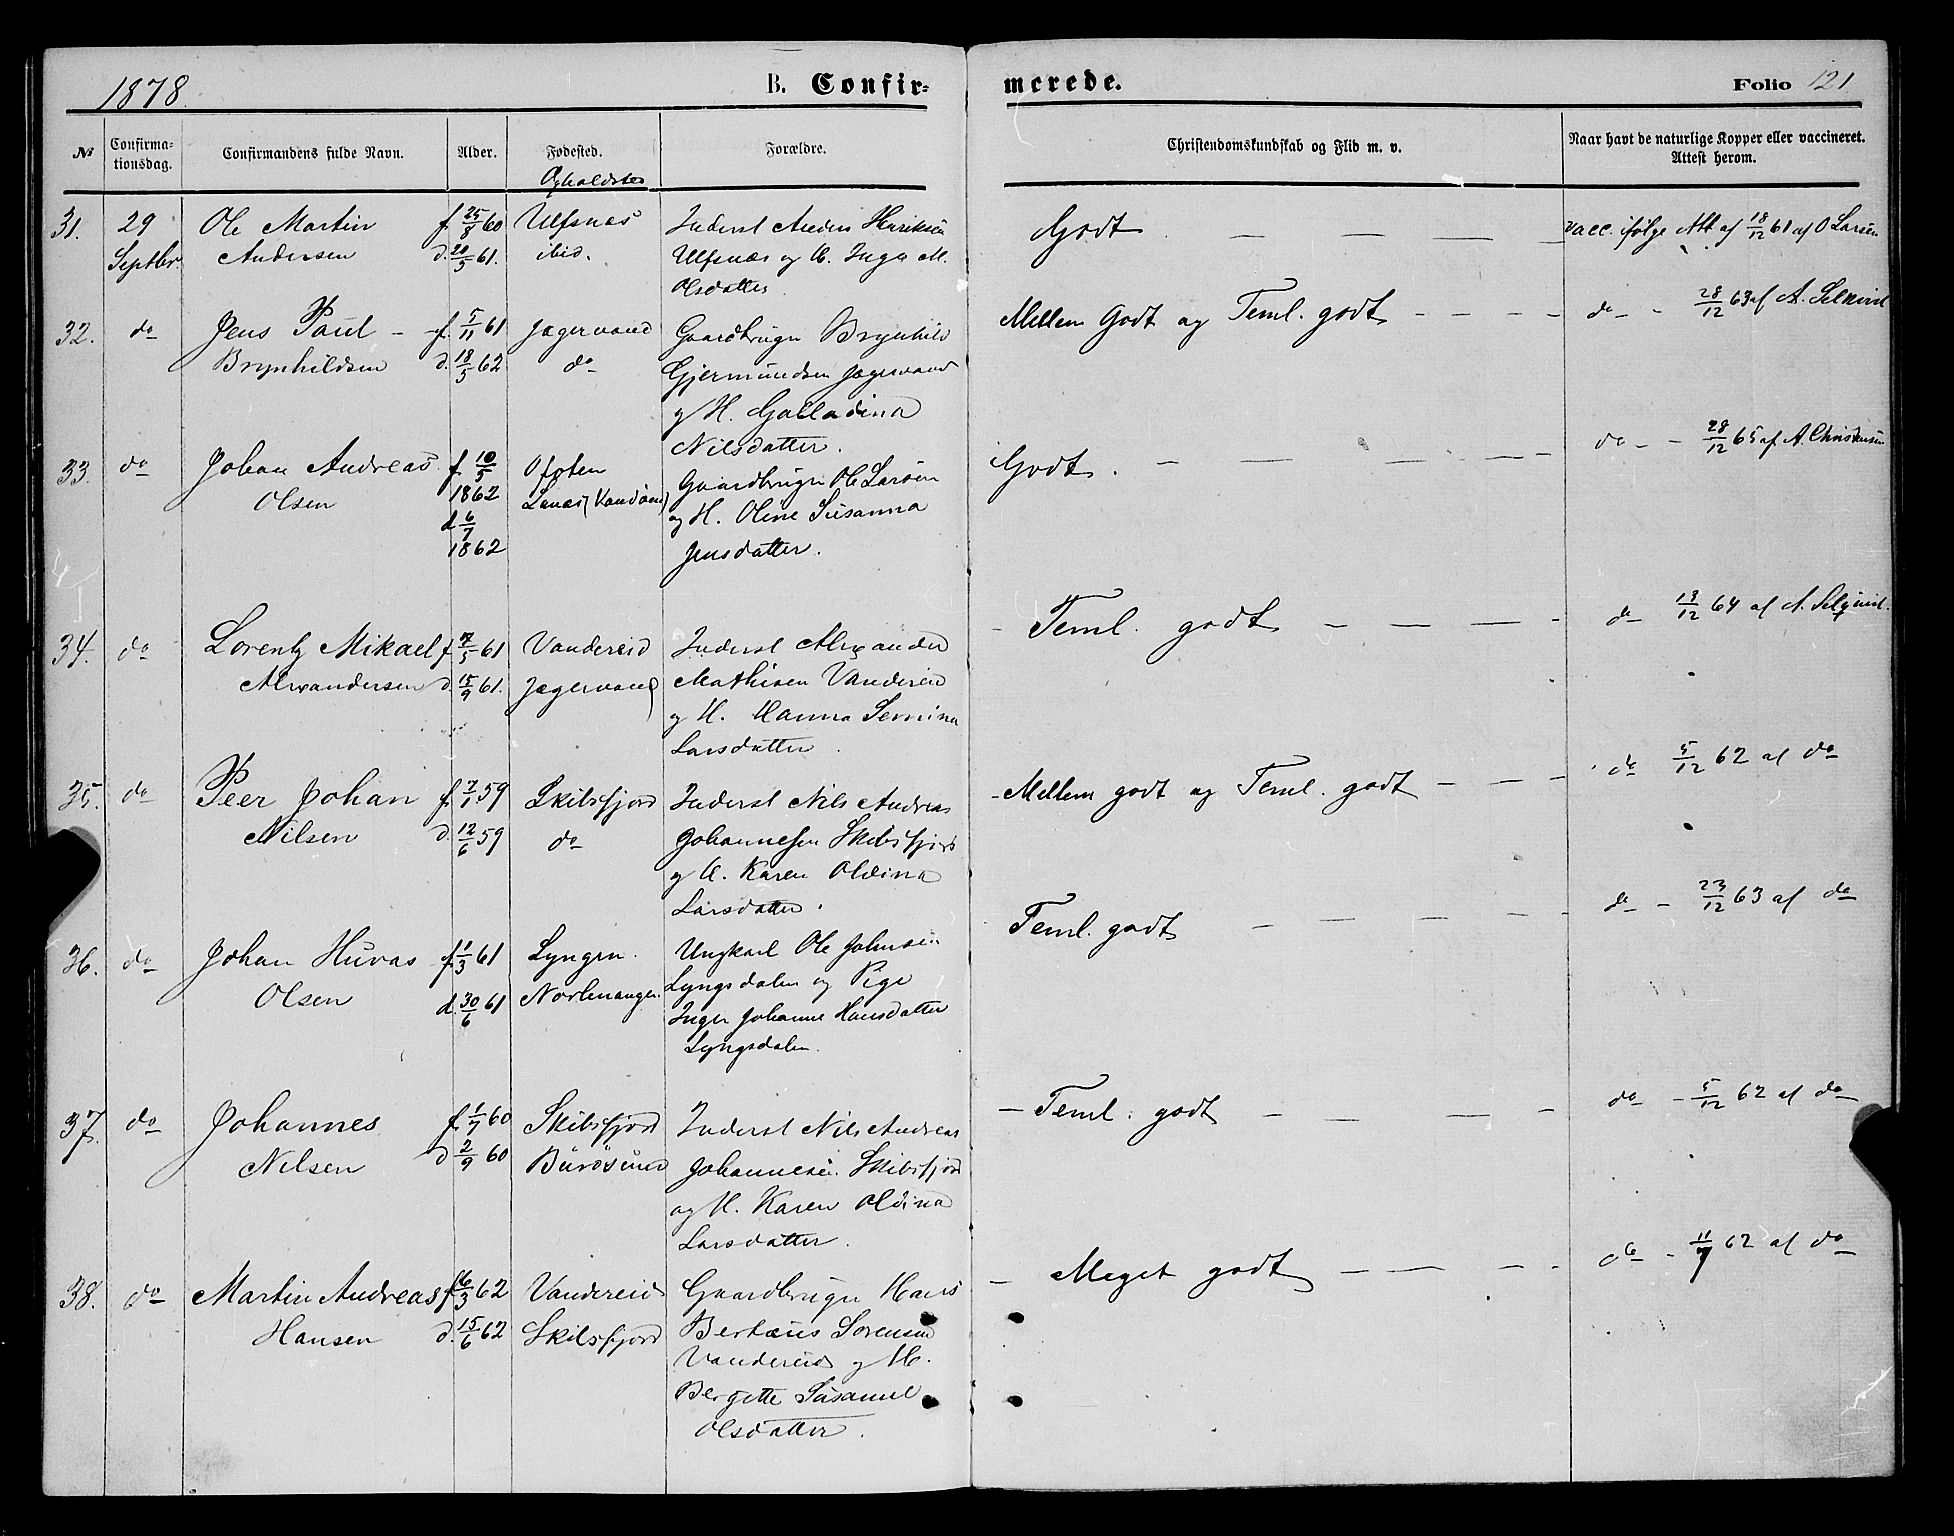 1878.
B. Confir=
merede.
Folio 121
№
Confirma-
tionsdag.
Confirmandens fulde Navn.
Alder.
Fødested.
Opholdsted
Forældre.
Christendomskundskab og Flid m. v.
Naar havt de naturlige Kopper eller vaccineret.
Attest herom.
31. 29 Ole Martin f. 25/8 60 Ulfsnæs Inderst Anders Henriksen Godt vacc. ifølge Att af 18/12 61 af O Larsen
Septbr. Andersen d. 20/5 61. ibid. Ulfsnæs og H. Inga M.
Olsdatter
32. do Jens Paul f. 5/11 61 Jægervand Gaardbruger Brynhild Mellem Godt og Teml. godt do 28/12 63 af A. Selqvist
Brynhildsen d. 18/5 62 do Gjermundsen Jægervand
og H. Galladina
Nilsdatter.
33. do Johan Andreas f. 10/5 Ofoten Gaardbruger Ole Larsen Godt. do 28/12 65 af A. Christensen
Olsen 1862 Lanæs (Vandøen) og H. Oline Susanna
d. 6/7 Jensdatter.
1862
34. do Lorentz Mikael f. 7/5 61 Vandereid Inderst Alexander Teml. godt do 13/12 64 af A. Selqvist.
Alexandersen d. 15/9 61. Jægervand Mathisen Vandereid
og H. Hanna Semina
Larsdatter
35. do Peer Johan f. 7/1 59 Skibsfjord Inderst Nils Andreas Mellem godt og Teml. godt do 5/12 62 af do
Nilsen d. 12/6 59 do Johannesen Skibsfjord
og H. Karen Oldina
Larsdatter.
36. do Johan Huvas f. 1/3 61 Lyngen. Ungkarl Ole Johnsen Teml. godt do 23/12 63 af do
Olsen d. 30/6 61 Lyngsdalen og Pige
Inger Johanne Hansdatter
Lyngsdalen.
37. do Johannes f. 1/7 60 Skibsfjord Inderst Nils Andreas Teml. godt do 5/12 62 af do
Nilsen d 2/9 60 Burøsund Johannesen Skibsfjord
og H. Karen Oldina
Larsdatter.
38. do Martin Andreas f 16/3 62 Vandereid Gaardbruger Hans Meget godt do 11/7 62 af do
Hansen d. 15/6 62 Skibsfjord Bertæus Sørensen
Vandereid og H.
Bergitte Susanne
Olsdatter.